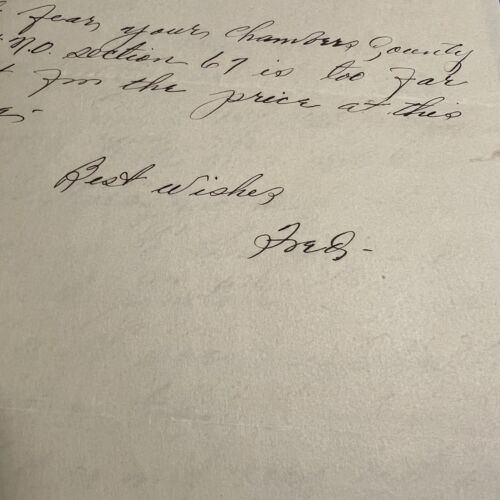 fear your Chambers County
No. section 67 is too far
for the price at this
Best wishes
Fred-